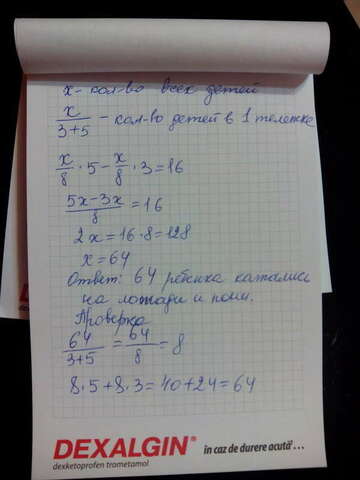 x - кол-во всех детей
x/(3+5) - кол-во детей в 1 тележке
x/8 · 5 - x/8 · 3 = 16
(5x-3x)/8 = 16
2x = 16·8 = 128
x = 64
Ответ: 64 ребенка катались
на лошади и пони.
Проверка
64/(3+5) = 64/8 = 8
8·5+8·3=40+24=64
DEXALGIN®
dexketoprofen trometamol
în caz de durere acută